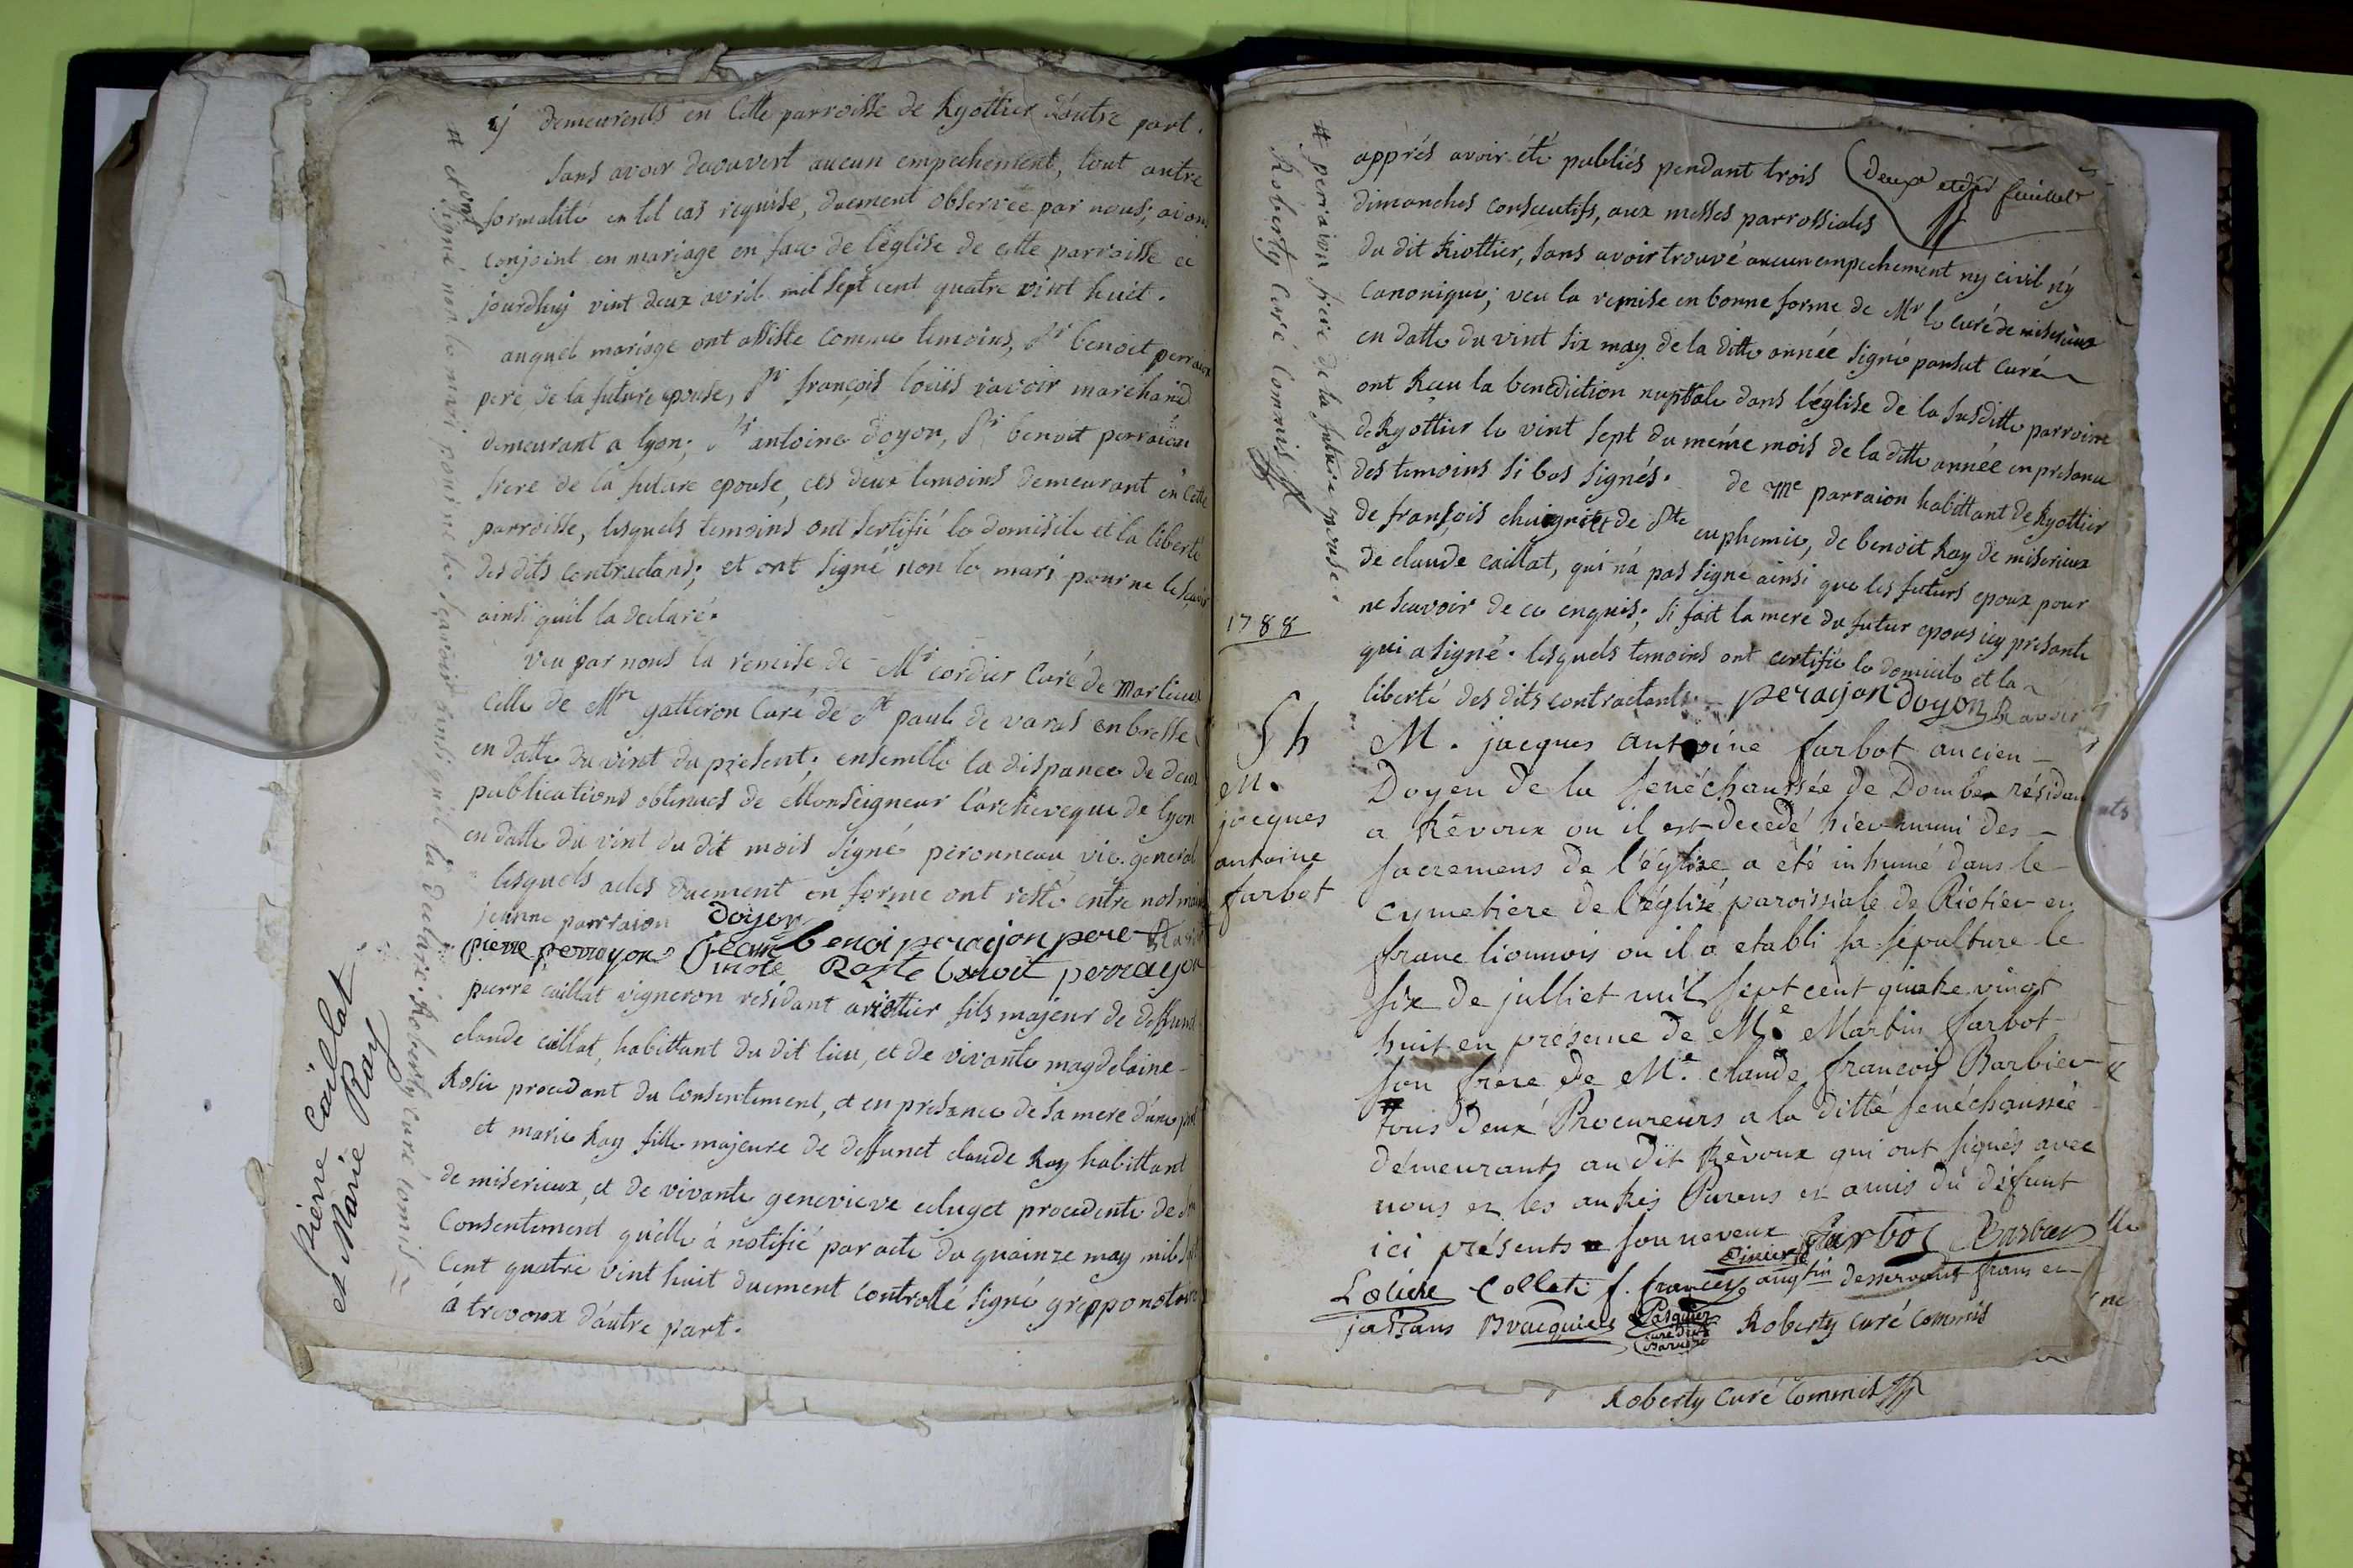 y demeurents en Cette parroisse de Ryottier d'autre part.
sans avoir decouvert aucun empechement, tout autre
formalité en tel cas requise, duement observée par nous; aions
conjoint en mariage en face de l'église de cette parroisse ce
jourdhuy vint deux avril mil sept cent quatre vint huit.
auquel mariage ont assiste comme temoins, Sr benoit perraion
pere de la future epouse, Sr françois loüis ravoir marchand
demeurant a lyon; Sr antoine doyon, Sr benoit perraion
frere de la future epouse, ces deux temoins demeurant en Cette
parroisse, lesquels temoins ont sertifié le domisile et la liberté
des dits contractans; et ont signé non le mari pour ne le sçavoir
ainsi quil la declaré.
veu par nous la remise de Mr cordier Curé de Marlieux
celle de Mre gatteron Curé de St paule de varas en bresse
en datte du vint du present. ensemble la dispance de deux
publications obtenues de Monseigneur l'archeveque de lyon
en datte du vint du dit mois signé peronneau vic. general
lesquels actes duement en forme ont resté entre nos mains
jeanne parraion doyon
pierre perrayon Jean benoi perayon pere Ravoir
benoit perrayon
# et ont signé non le mari pour ne le scavoir ainsi quil la declaré. Roberty curé Comis
pierre Caillat
et Marie Ray
pierre caillat vigneron residant a riottier fils majeur de deffunt
claude caillat, habittant du dit lieu, et de vivante magdelaine
Rosie procedant du Consentement, et en presance de sa mere d'une part
et marie Ray fille majeure de deffunct claude Ray habittant
de miserieux, et de vivante genevieve celuget procedente de son
Consentement qu'elle à notifié par acte du quainze may mil sept
Cent quatre vint huit duement controllé signé greppo notaire
à trevoux d'autre part.
Deux et dr feuillet
apprés avoir été publiés pendant trois
dimanches consecutifs, aux messes parrossiales
du dit Riottier, sans avoir trouvé aucun empechement ny civil ny
Canonique; veu la remise en bonne forme de Mr le curé de miserieux
en datte du vint six may de la ditte année signé pansut Curé
ont Reçu la benediction nuptiale dans l'église de la susditte parroisse
de Ryottier le vint sept du méme mois de la ditte année en presance
des temoins si bas signés. de Me parraion habittant de Ryottier
de françois chuignet de Ste euphemie, de benoit Ray de miserieux
de claude caillat, qui n'a pas signé ainsi que les futurs epoux pour
ne scavoir de ce enquis; si fait la mere du futur epous icy presante
qui a signé. lesquels temoins ont certifié le domicile et la
liberté des dits contractants. perayon doyon Ravoir
# periaion frere de la future epouse.
Roberty Curé Commis
1788
Sh
M.
jacques
antoine
farbot
M. jacques antoine farbot ancien
Doyen de la senéchaussée de Dombe résidant
a trévoux ou il est decedé hier muni des
sacremens de l'église a eté inhumé dans le
cymetiere de l'église paroissiale de Riotier en
franc lionnois ou il a etabli sa sépulture le
six de julliet mil sept cent quatre vingt
huit en présence de Me Martin farbot
son frere de Me claude francois Barbier
tous deux Procureurs a la ditte senéchaussée
démeurants au dit trévoux qui ont signés avec
nous et les autres Parens et amis du défunt
ici présents son neveux farbot Barbier
Collet f. françois augstin desservant frans et
jassans Bracquier Pasquier Roberty Curé Commis
Roberty Curé Commis